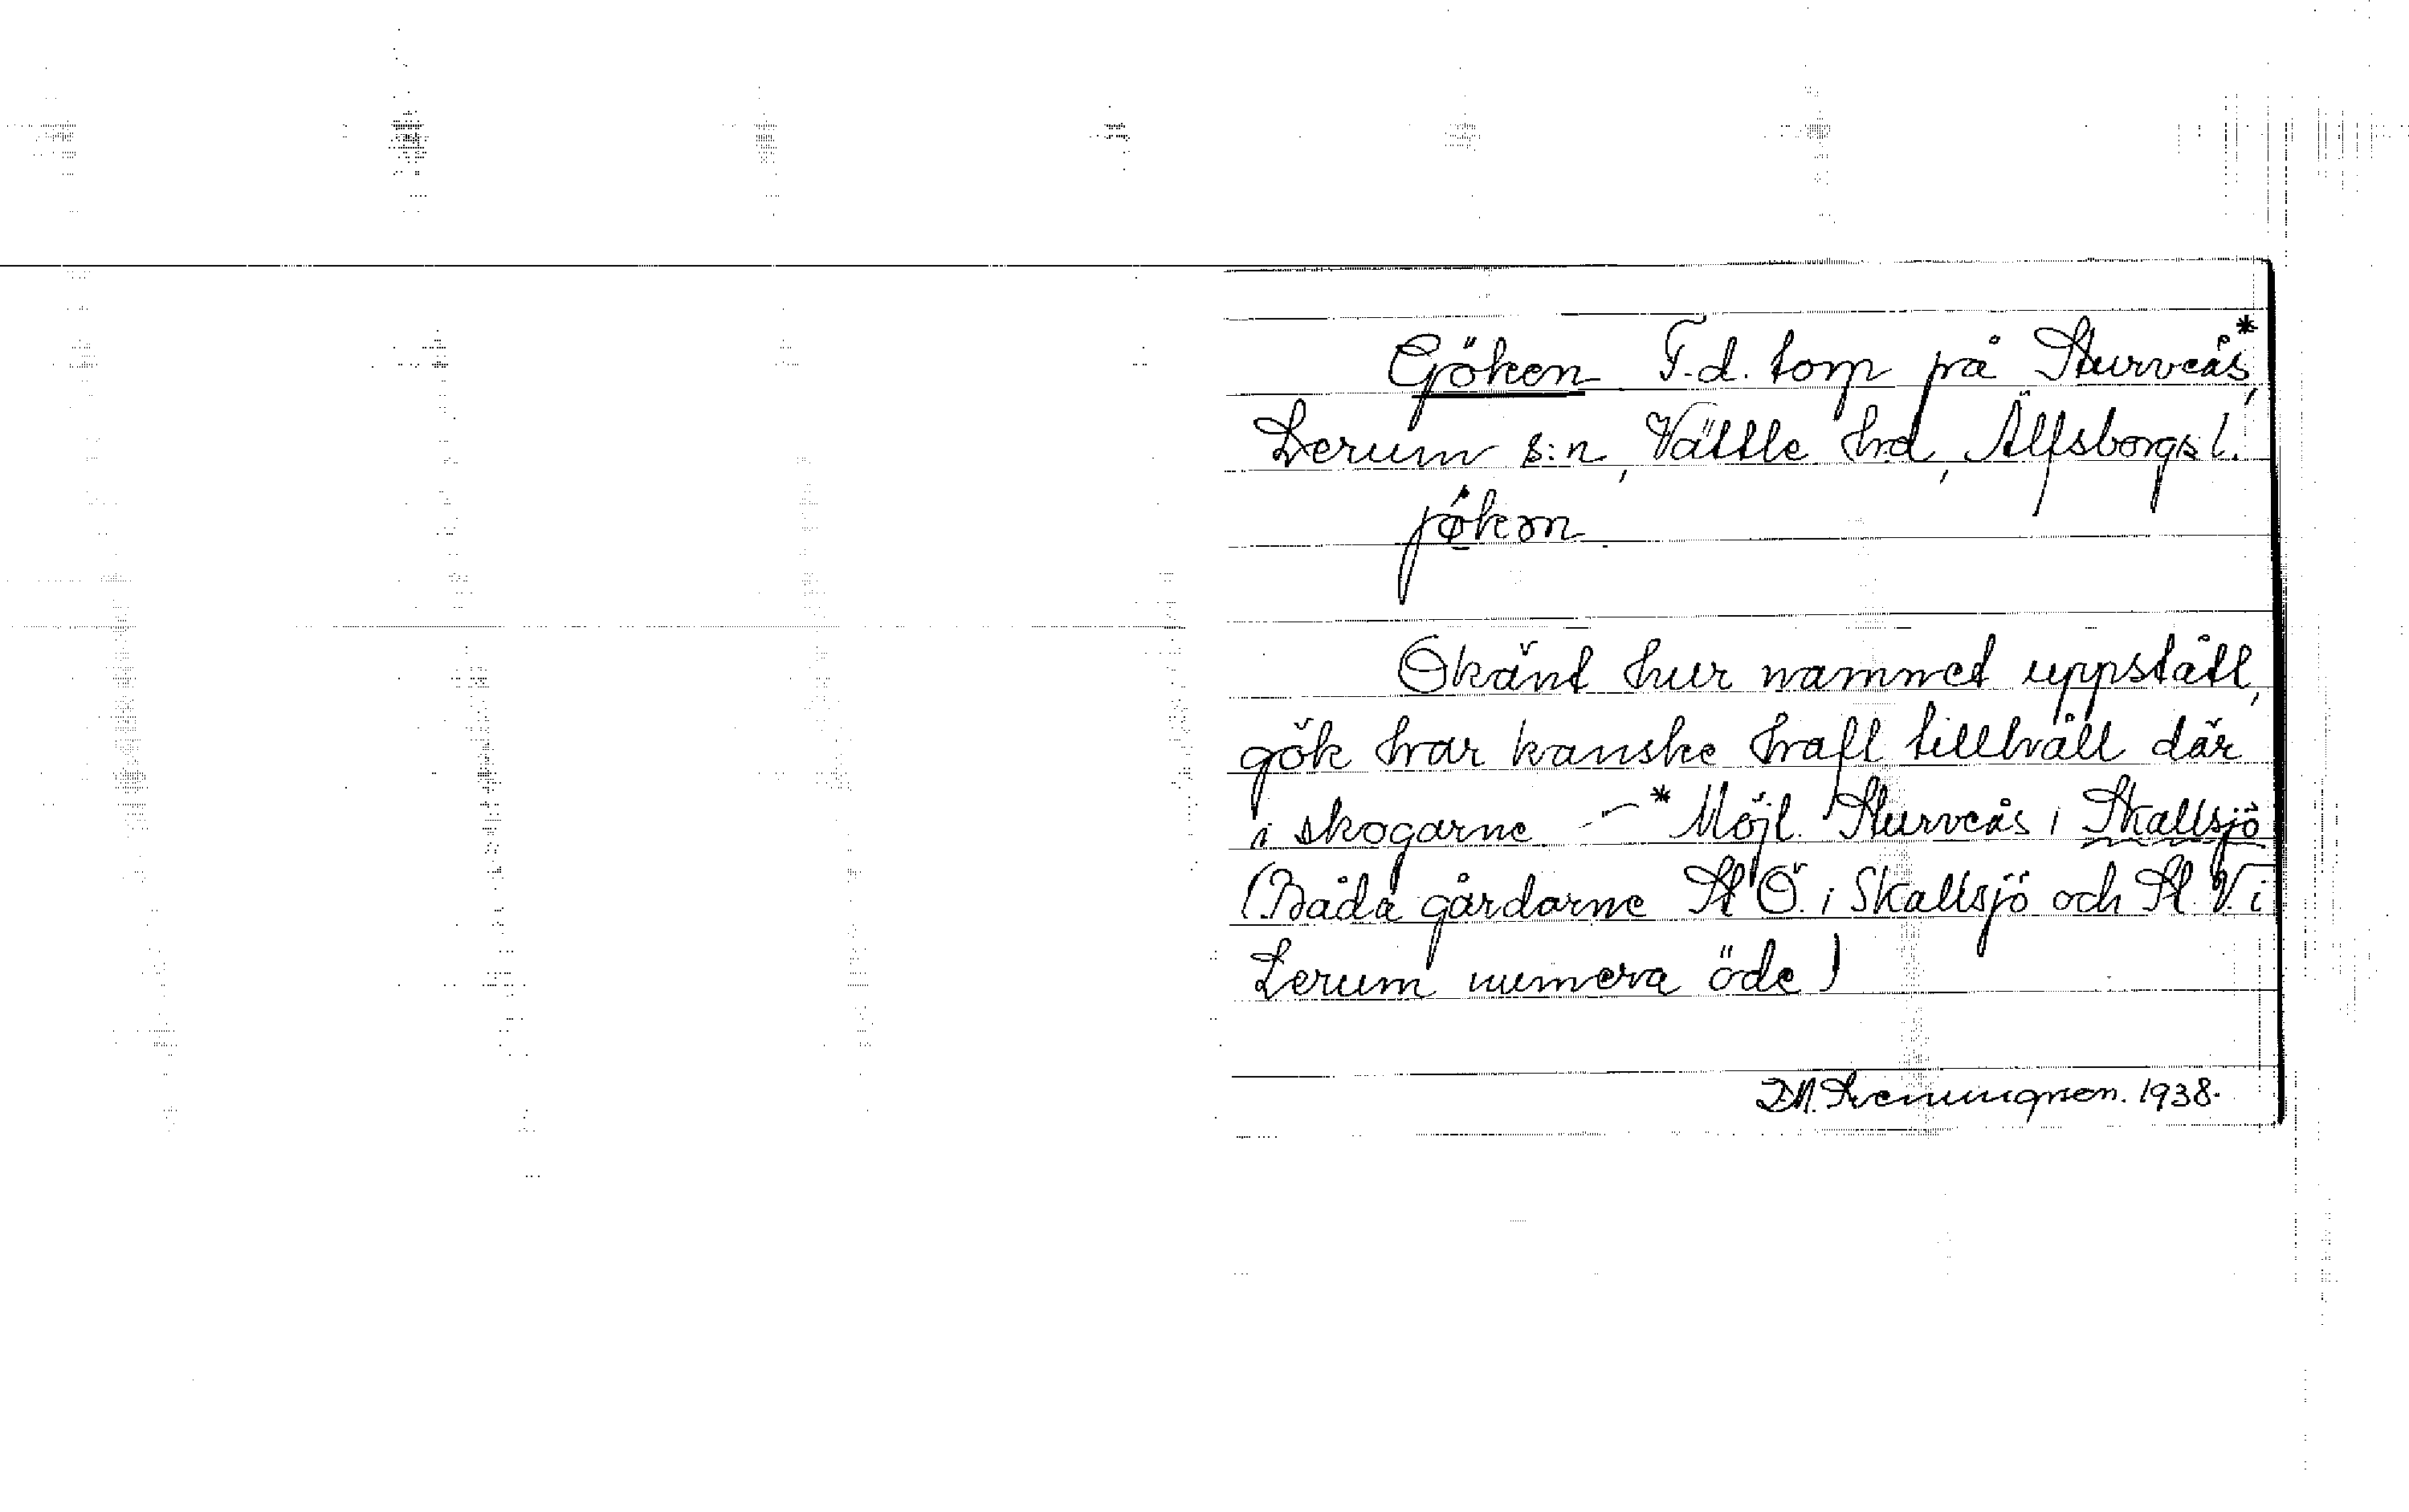 Göken F.d. torp på Sturveås*,
Lerum s:n, Vättle hrd, Älfsborgs l.
jökɔn.
Okänt hur namnet uppstått,
gök har kanske haft tillhåll där
i skogarne. — * Möjl. Sturveås i Skallsjö
(Båda gårdarne St Ö. i Skallsjö och St. V. i
Lerum numera öde)
D.A. 1938.